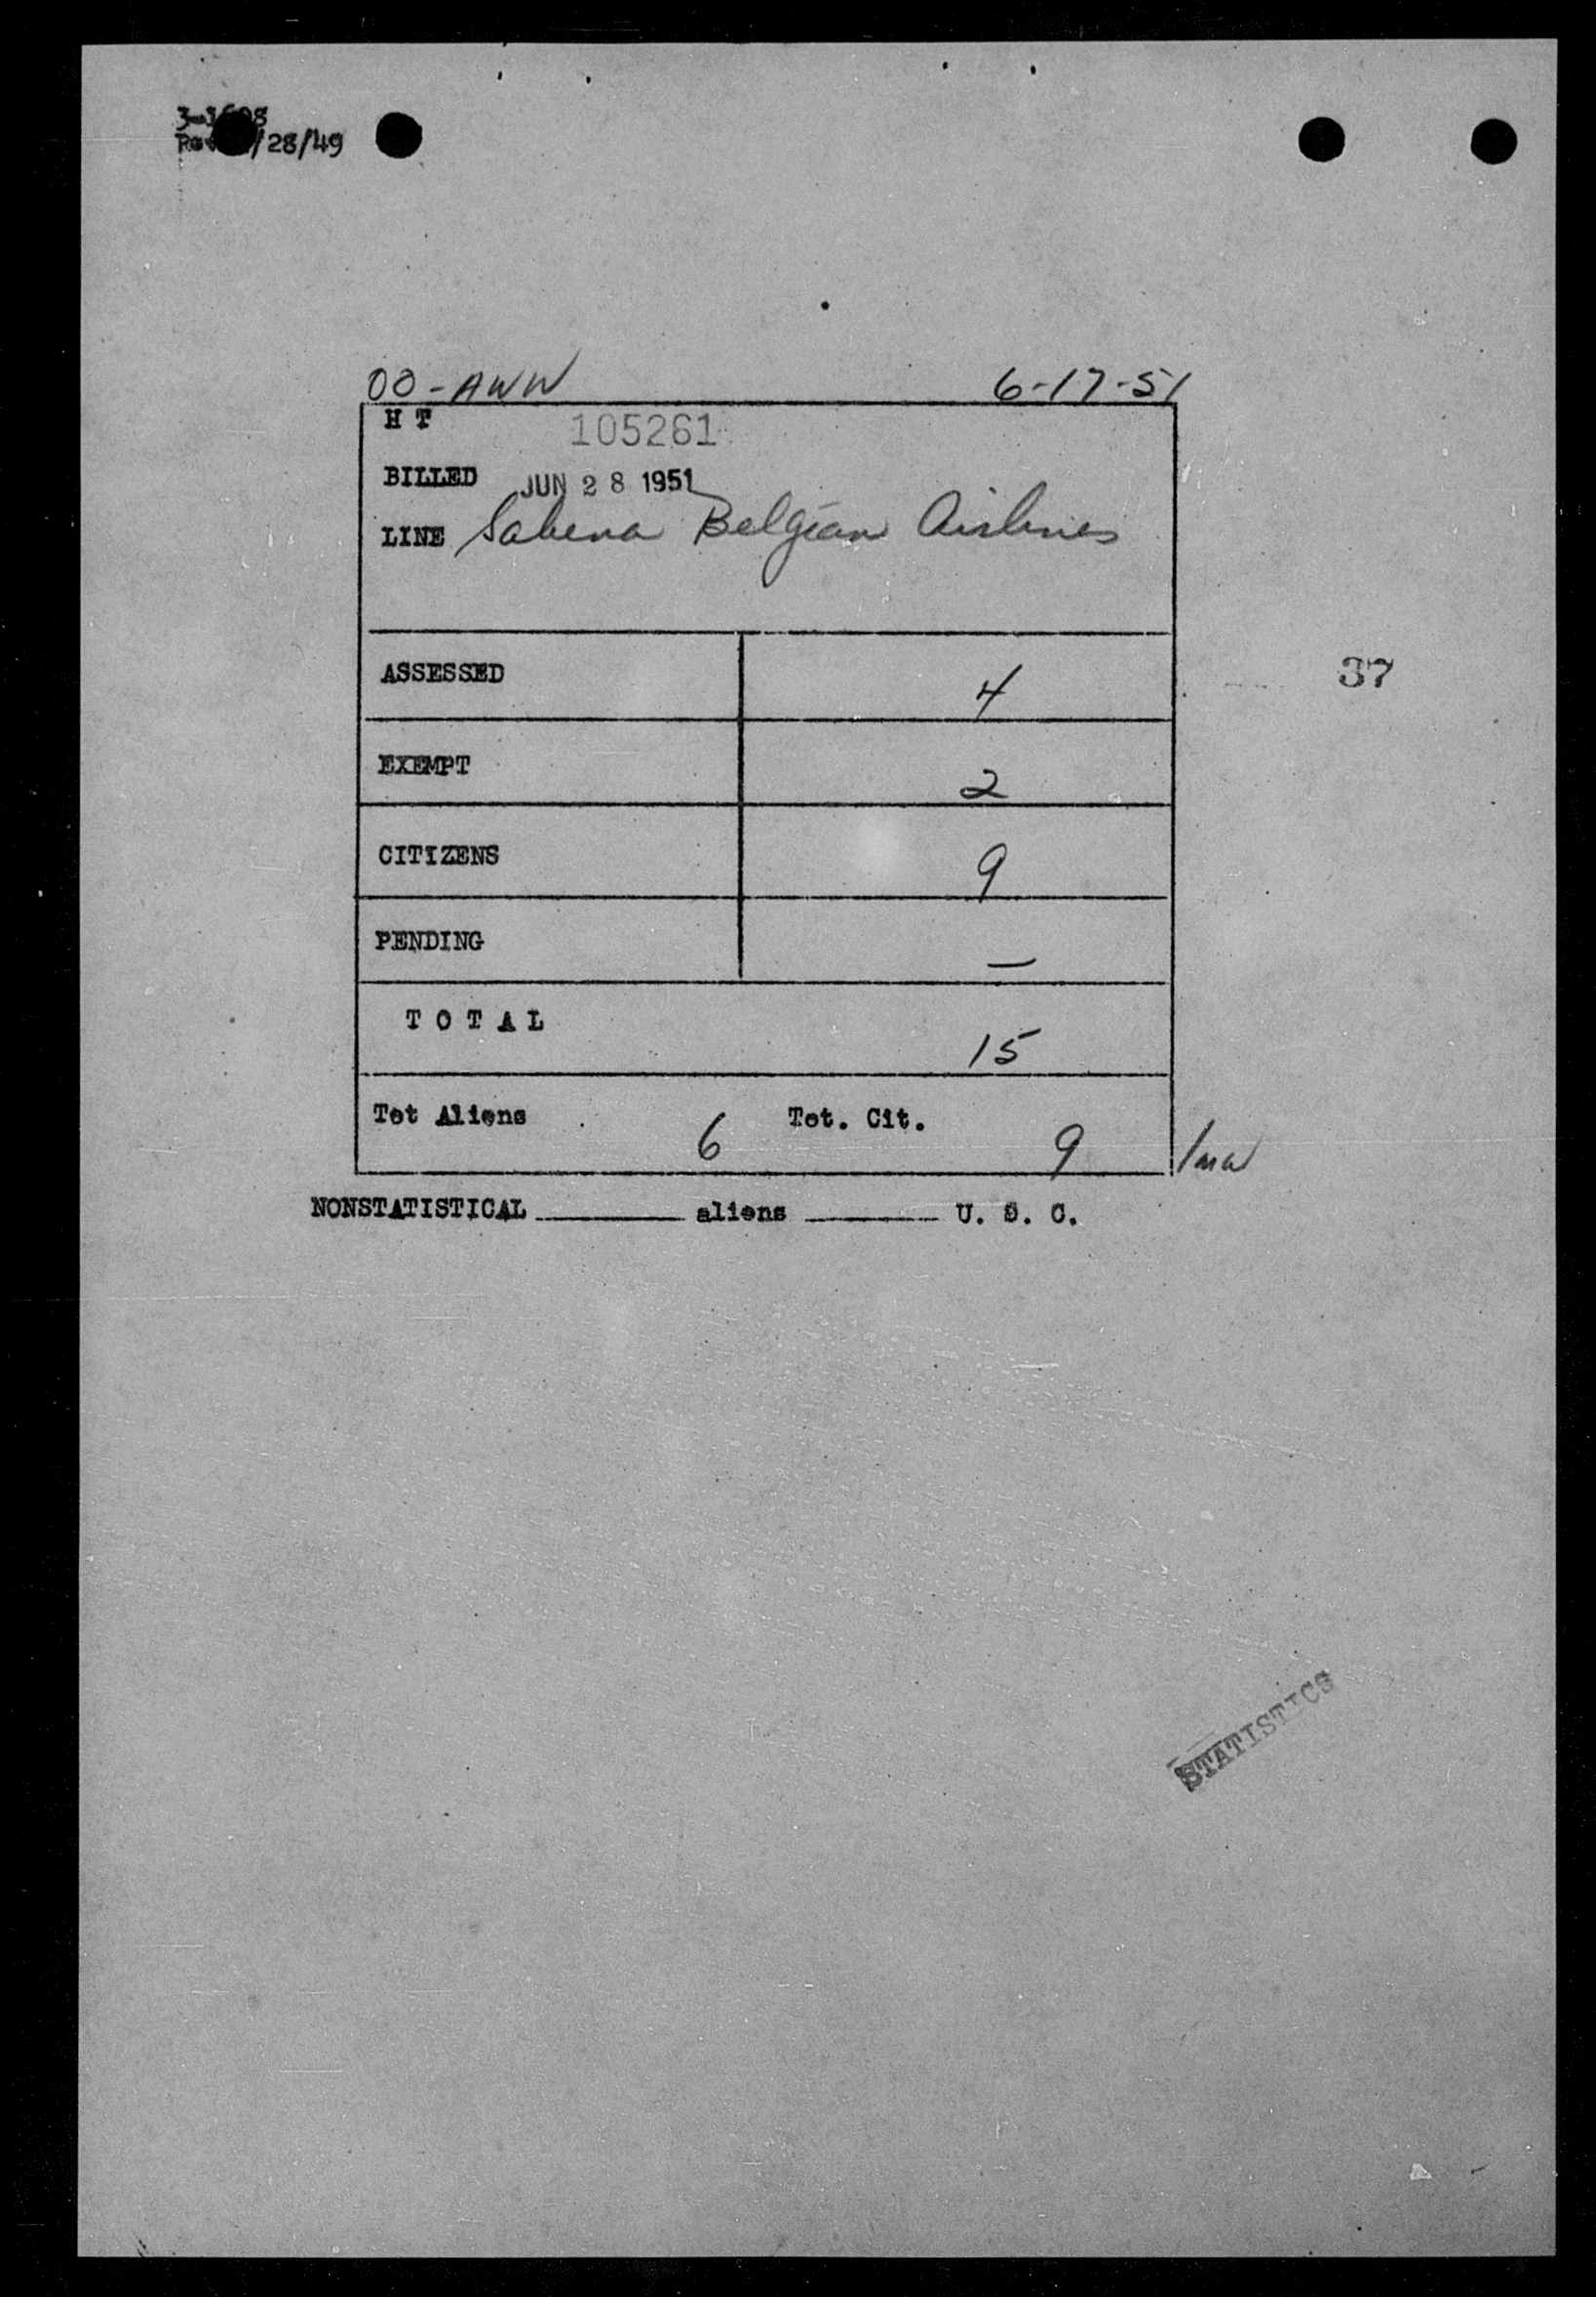 /28/49
OO-AWW 6-17-51
H T 105261
BILLED JUN 28 1951
LINE Sabena Belgian Airlines
ASSESSED 4
37
EXEMPT 2
CITIZENS 9
PENDING —
TOTAL 15
Tot Aliens 6 Tot. Cit. 9
NONSTATISTICAL ______ aliens ______ U. S. C.
STATISTICS